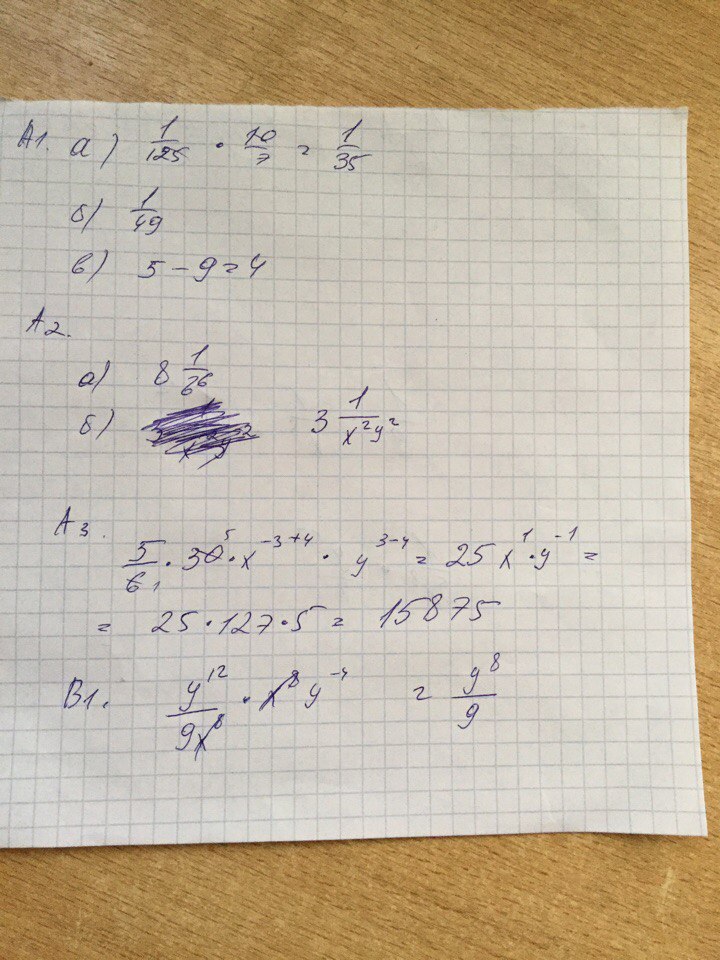 А1. а) 1/125 · 10/7 = 1/35
б) 1/49
в) 5 - 9 = 4
А2.
а) 8 1/66
б) 3 1/x²y²
А3.
5/6₁ · 30⁵ · x⁻³⁺⁴ · y³⁻⁴ = 25 x¹ · y⁻¹ =
= 25 · 127 · 5 = 15875
В1. y¹²/9x⁸ · x⁸ y⁻⁴ = y⁸/9